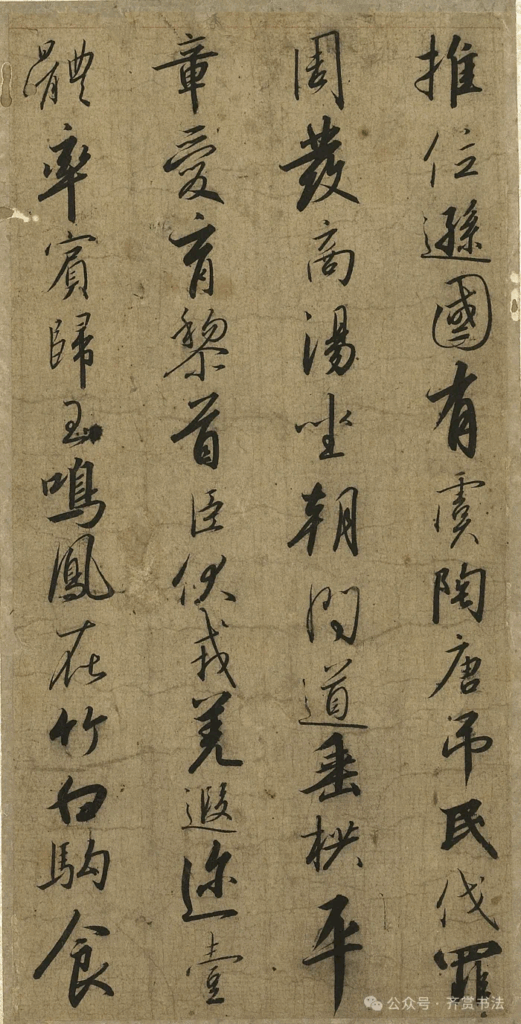 推位遜國有虞陶唐吊民伐罪
周發商湯坐朝問道垂拱平
章愛育黎首臣伏戎羌遐迩壹
體率賓歸王鳴鳳在竹白駒食
公众号·齐赏书法